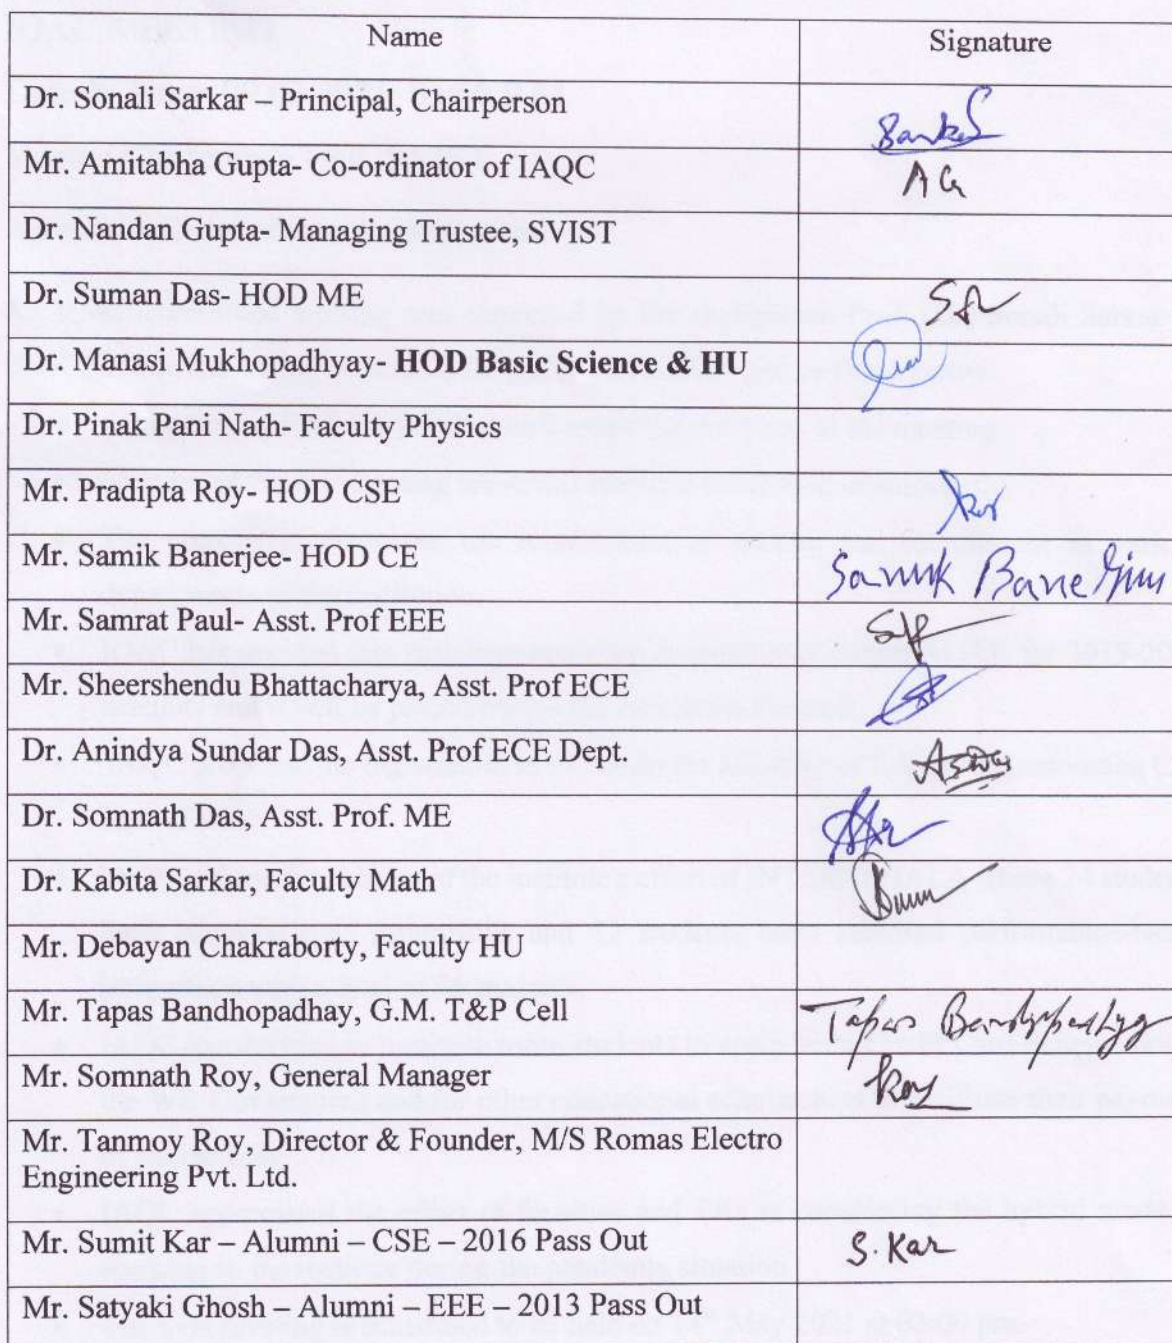 Name Signature
Dr. Sonali Sarkar – Principal, Chairperson Sarkar
Mr. Amitabha Gupta- Co-ordinator of IAQC AG
Dr. Nandan Gupta- Managing Trustee, SVIST
Dr. Suman Das- HOD ME
Dr. Manasi Mukhopadhyay- HOD Basic Science & HU
Dr. Pinak Pani Nath- Faculty Physics
Mr. Pradipta Roy- HOD CSE
Mr. Samik Banerjee- HOD CE Samik Banerjee
Mr. Samrat Paul- Asst. Prof EEE
Mr. Sheershendu Bhattacharya, Asst. Prof ECE
Dr. Anindya Sundar Das, Asst. Prof ECE Dept.
Dr. Somnath Das, Asst. Prof. ME
Dr. Kabita Sarkar, Faculty Math
Mr. Debayan Chakraborty, Faculty HU
Mr. Tapas Bandhopadhay, G.M. T&P Cell Tapas Bandyopadhyay
Mr. Somnath Roy, General Manager Roy
Mr. Tanmoy Roy, Director & Founder, M/S Romas Electro
Engineering Pvt. Ltd.
Mr. Sumit Kar – Alumni – CSE – 2016 Pass Out S. Kar
Mr. Satyaki Ghosh – Alumni – EEE – 2013 Pass Out